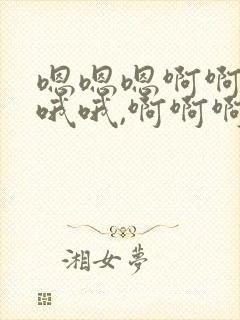 嗯嗯嗯啊啊
哦哦,啊啊啊
湘女夢